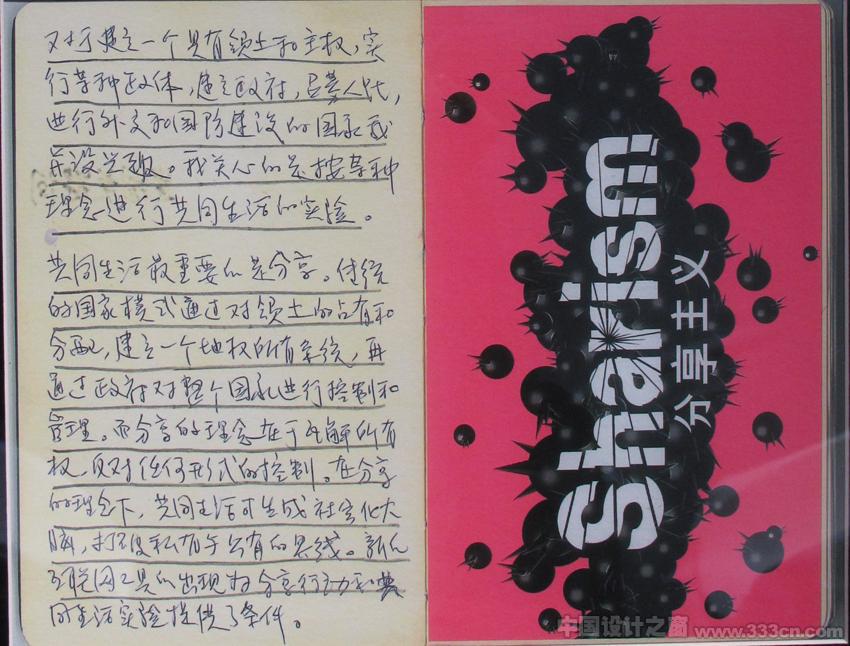 对于建立一个具有领土和主权，实
行某种政体，建立政府，召幕人民，
进行外交和国防建设的国家我
并没兴趣。我关心的是按某种
理念进行共同生活的实险。
共同生活最重要的是分享。传统
的国家模式通过对领土的占有和
分配，建立一个地权所有系统，再
通过政府对整个国家进行控制和
管理。而分享的理念在于瓦解所有
权，反对任何形式的控制。在分享
的理念下，共同生活可生成社会化大
脑，打破私有与公有的界线。新的
互联网工具的出现为分享行动和共
同生活实险提供了条件。
Sharism
分享主义
中国设计之窗 www.333cn.com